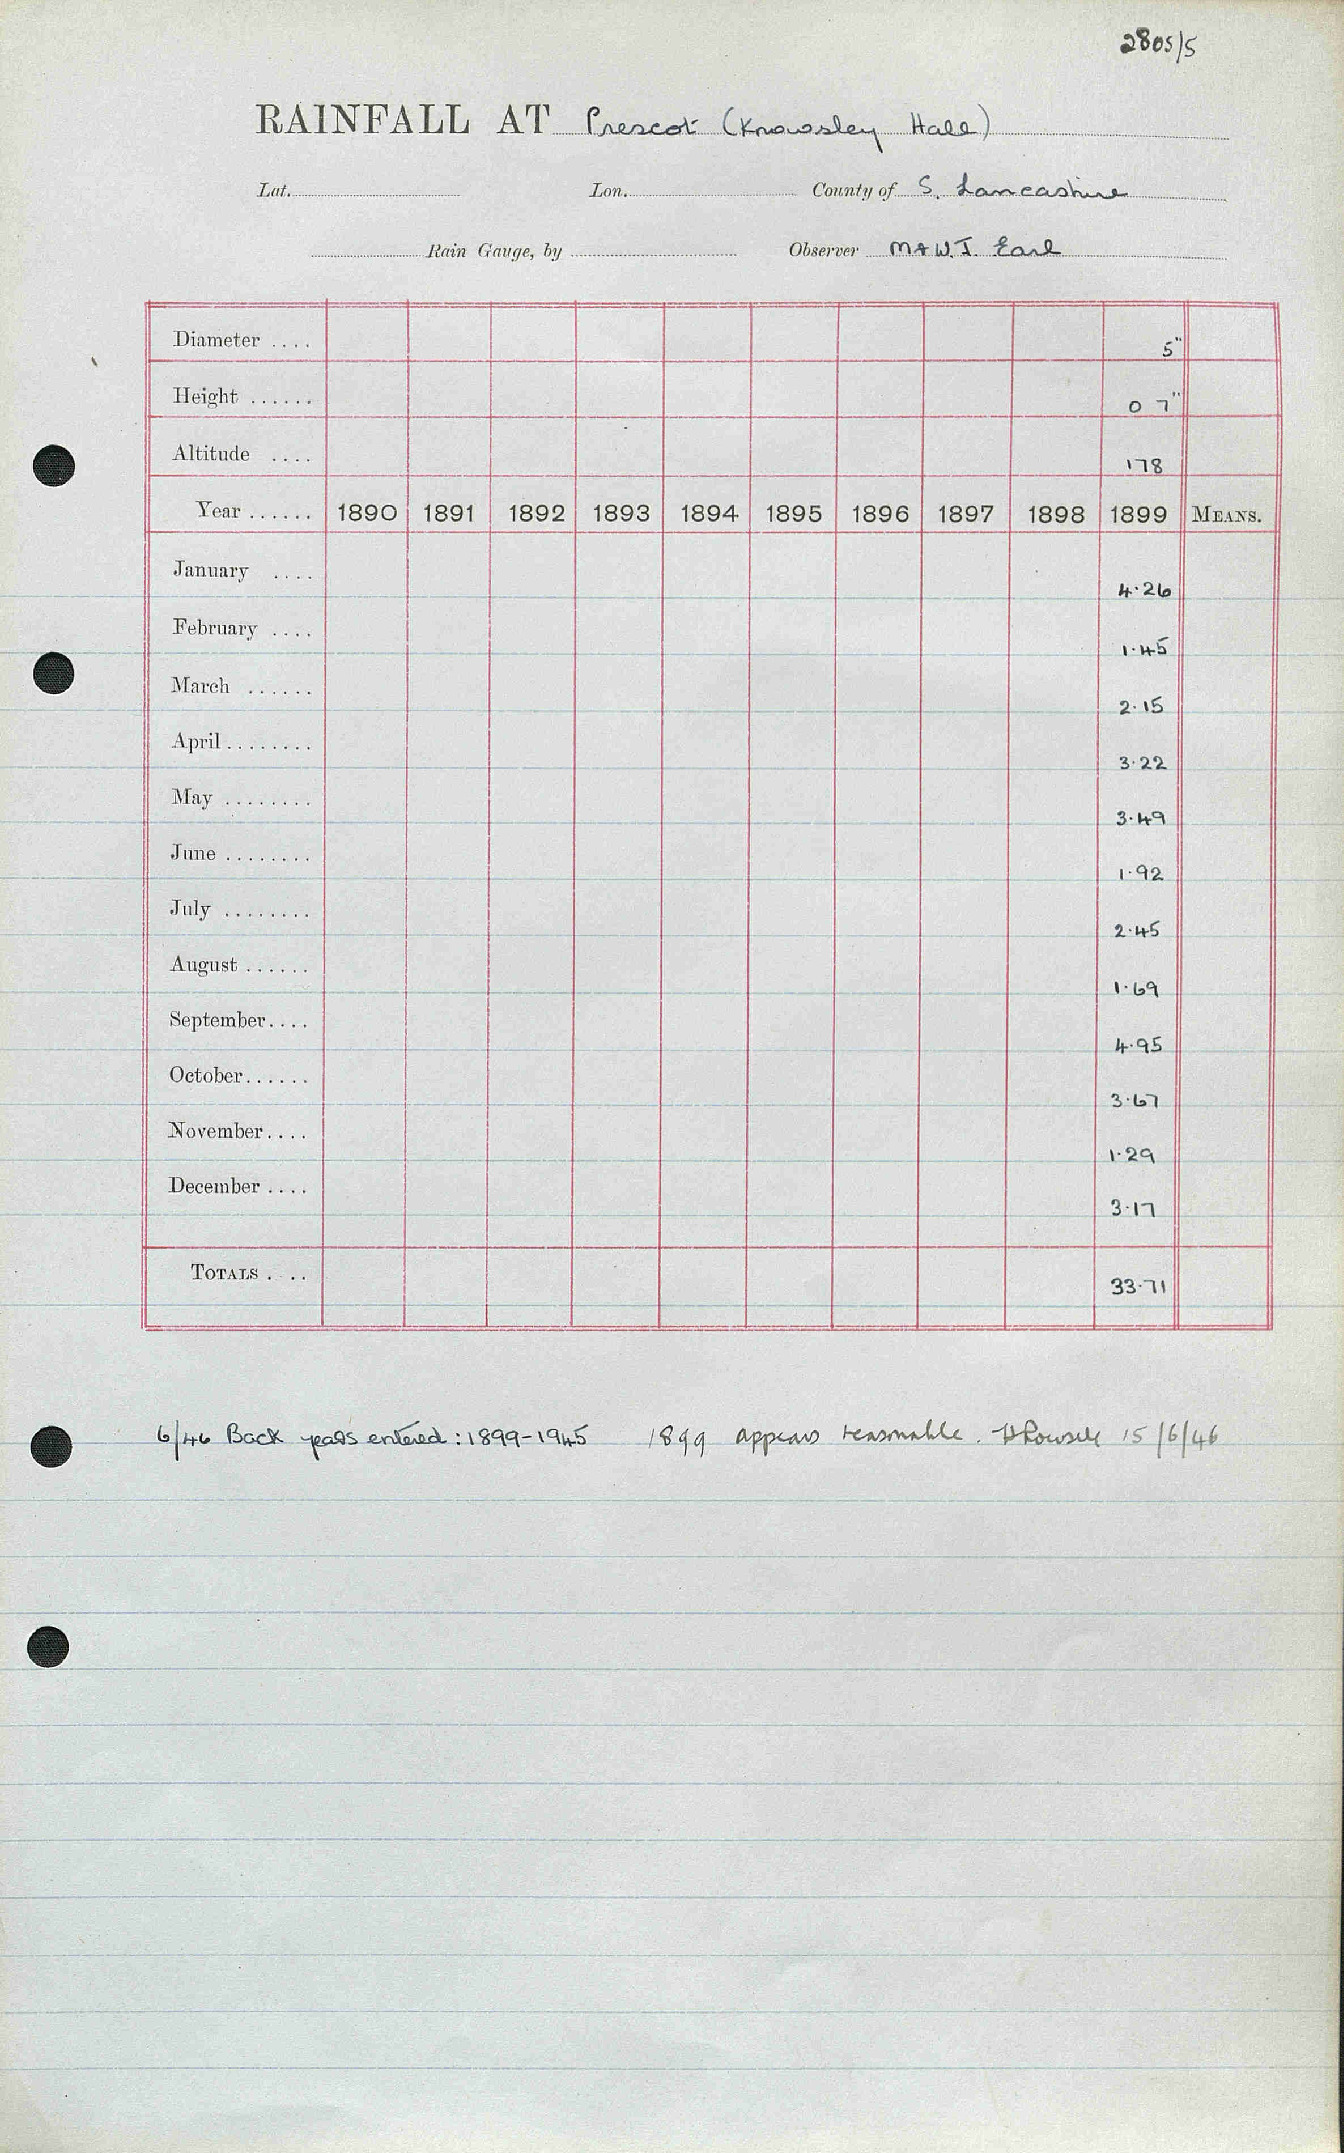 2805/5
RAINFALL AT Prescot (Knowsley Hall)
Lat. Lon. County of S. Lancashire
Rain Gauge, by Observer M & W.J. Earl
Diameter .... 5"
Height ...... 0 7"
Altitude .... 178
Year ...... 1890 1891 1892 1893 1894 1895 1896 1897 1898 1899 MEANS.
January .... 4.26
February .... 1.45
March ...... 2.15
April ........ 3.22
May ........ 3.49
June ........ 1.92
July ........ 2.45
August ...... 1.69
September.... 4.95
October...... 3.67
November.... 1.29
December .... 3.17
TOTALS . .. 33.71
6/46 Back years entered: 1899-1945 1899 appears reasonable. 15/6/46